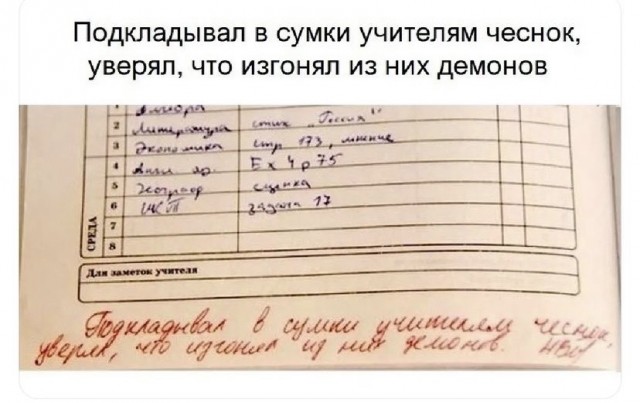 Подкладывал в сумки учителям чеснок,
уверял, что изгонял из них демонов
Алгебра
2 Литература стих „Россия"
3 Экономика стр 173, мнение
4 Англ яз. Ex 4 p 75
5 Географ сценка
6 ИКТ задача 17
7
8
СРЕДА
Для заметок учителя
Подкладывал в сумки учителям чеснок,
уверял, что изгонял из них демонов.